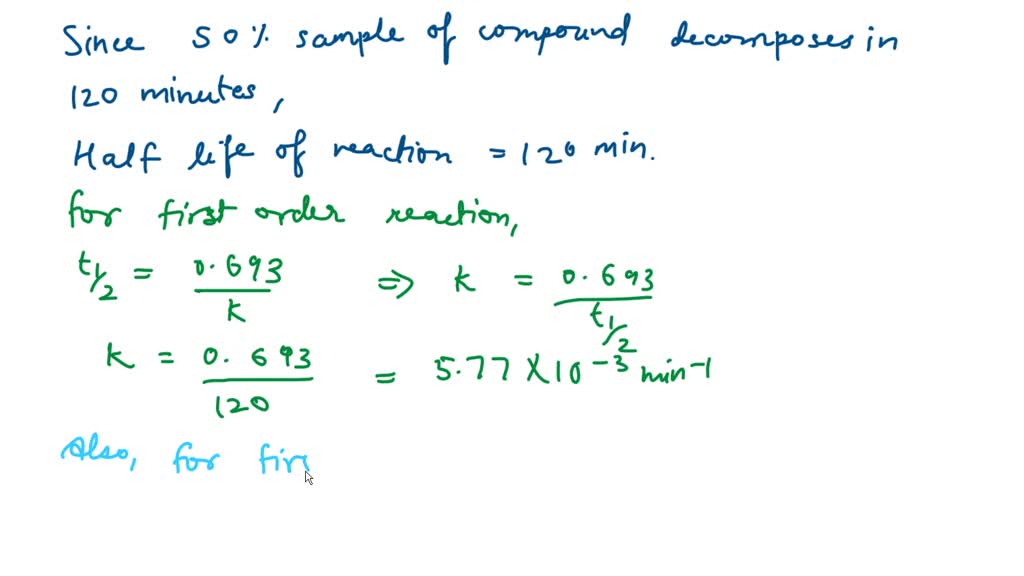 Since 50% sample of compound decomposes in
120 minutes,
Half life of reaction = 120 min.
for first order reaction,
t1/2 = 0.693/k ⇒ k = 0.693/t1/2
k = 0.693/120 = 5.77 × 10⁻³ min⁻¹
Also, for fir